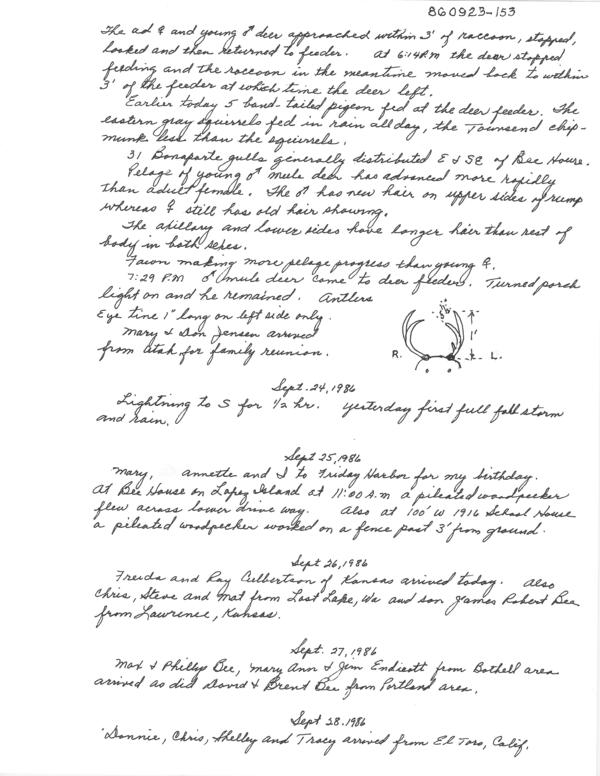 860923-153
The ad ♀ and young ♂ deer approached within 3' of raccoon, stopped,
looked and then returned to feeder. At 6:14 P.M the deer stopped
feeding and the raccoon in the meantime moved back to within
3' of the feeder at which time the deer left.
Earlier today 5 band-tailed pigeon fed at the deer feeder. The
eastern gray squirrels fed in rain all day, the Townsend chip-
munk less than the squirrels.
31 Bonaparte gulls generally distributed E & SE of Bee House.
Pelage of young ♂ mule deer has advanced more rapidly
than adult female. The ♂ has new hair on upper sides of rump
whereas ♀ still has old hair showing.
The axillary and lower sides have longer hair than rest of
body in both sexes.
Fawn making more pelage progress than young ♀.
7:29 P.M ♂ mule deer came to deer feeders. Turned porch
light on and he remained. Antlers
Eye tine 1" long on left side only.
Mary & Don Jensen arrived
from Utah for family reunion.
R. L.
1'
Sept. 24, 1986
Lightning to S for 1/2 hr. Yesterday first full fall storm
and rain.
Sept 25, 1986
Mary, Annette and I to Friday Harbor for my birthday.
At Bee House on Lopez Island at 11:00 A.m a pileated woodpecker
flew across lower drive way. Also at 100' W 1916 School House
a pileated woodpecker worked on a fence post 3' from ground.
Sept 26, 1986
Freida and Ray Culbertson of Kansas arrived today. Also
Chris, Steve and Mat from Lost Lake, Wa and son James Robert Bee
from Lawrence, Kansas.
Sept. 27, 1986
Max & Phillip Bee, Mary Ann & Jim Endicott from Bothell area
arrived as did David & Brent Bee from Portland area.
Sept 28. 1986
Donnie, Chris, Shelley and Tracy arrived from El Toro, Calif.